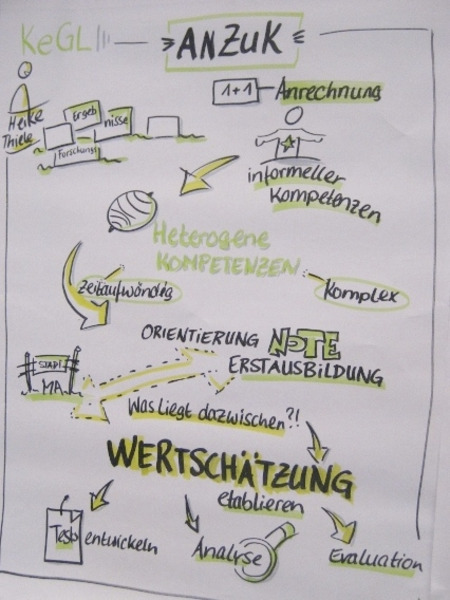 KeGL
ANZUK
1+1
Anrechnung
Heike
Thiele
Ergeb
nisse
Forschungs
informeller
Kompetenzen
Heterogene
KOMPETENZEN
Zeitaufwändig
Komplex
ORIENTIERUNG NOTE
ERSTAUSBILDUNG
START
MA
Was liegt dazwischen?!
WERTSCHÄTZUNG
etablieren
Tests entwickeln
Analyse
Evaluation